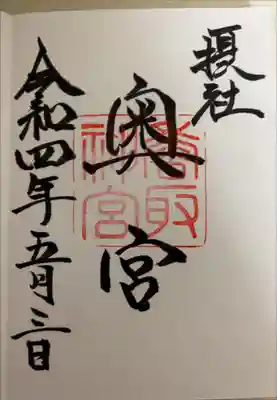 摂社
奥宮
香取
神宮
令和四年五月三日